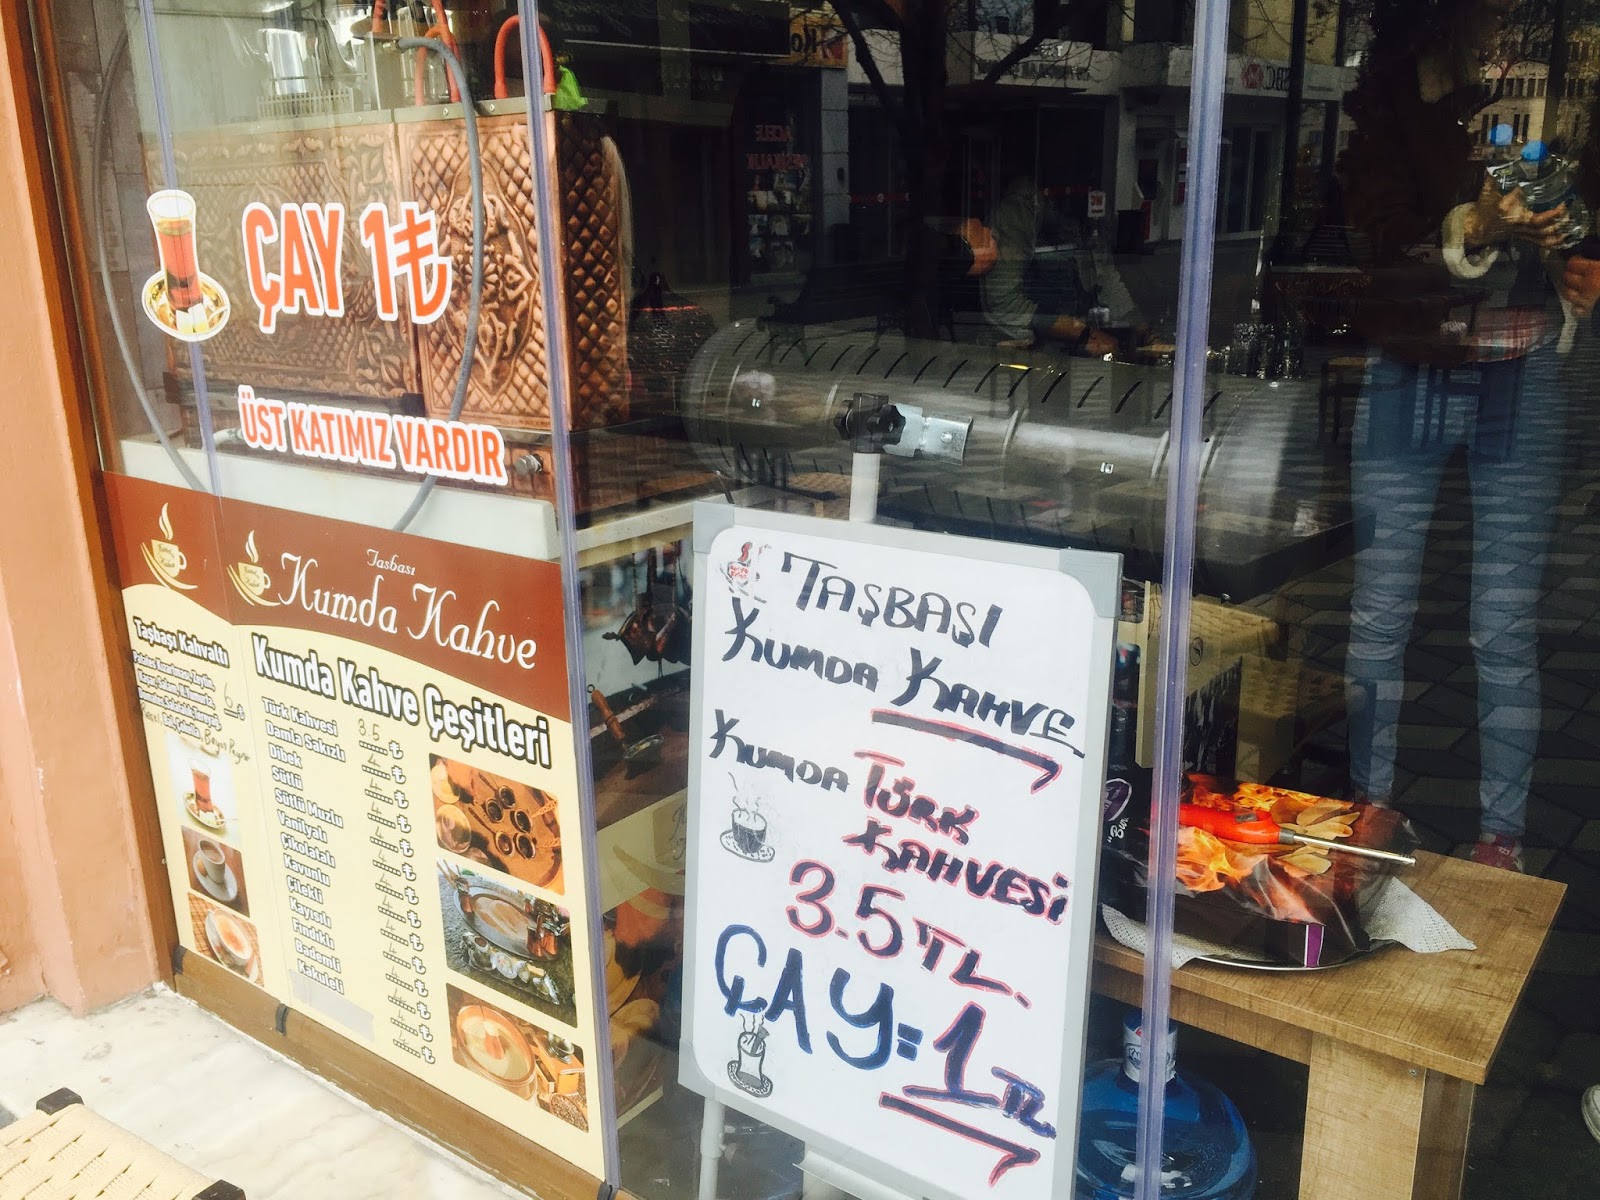 ÇAY 1₺
ÜST KATIMIZ VARDIR
Taşbaşı
Kumda Kahve
Taşbaşı Kahvaltı
6 ₺
Kumda Kahve Çeşitleri
Türk Kahvesi 3.5 ₺
Damla Sakızlı 4 ₺
Dibek 4 ₺
Sütlü 4 ₺
Sütlü Muzlu 4 ₺
Vanilyalı 4 ₺
Çikolatalı 4 ₺
Kavunlu 4 ₺
Çilekli 4 ₺
Kayısılı 4 ₺
Fındıklı 4 ₺
Bademli 4 ₺
Kakuleli 4 ₺
TAŞBAŞI
KUMDA KAHVE
KUMDA TÜRK
KAHVESİ
3.5 TL.
ÇAY=1 TL